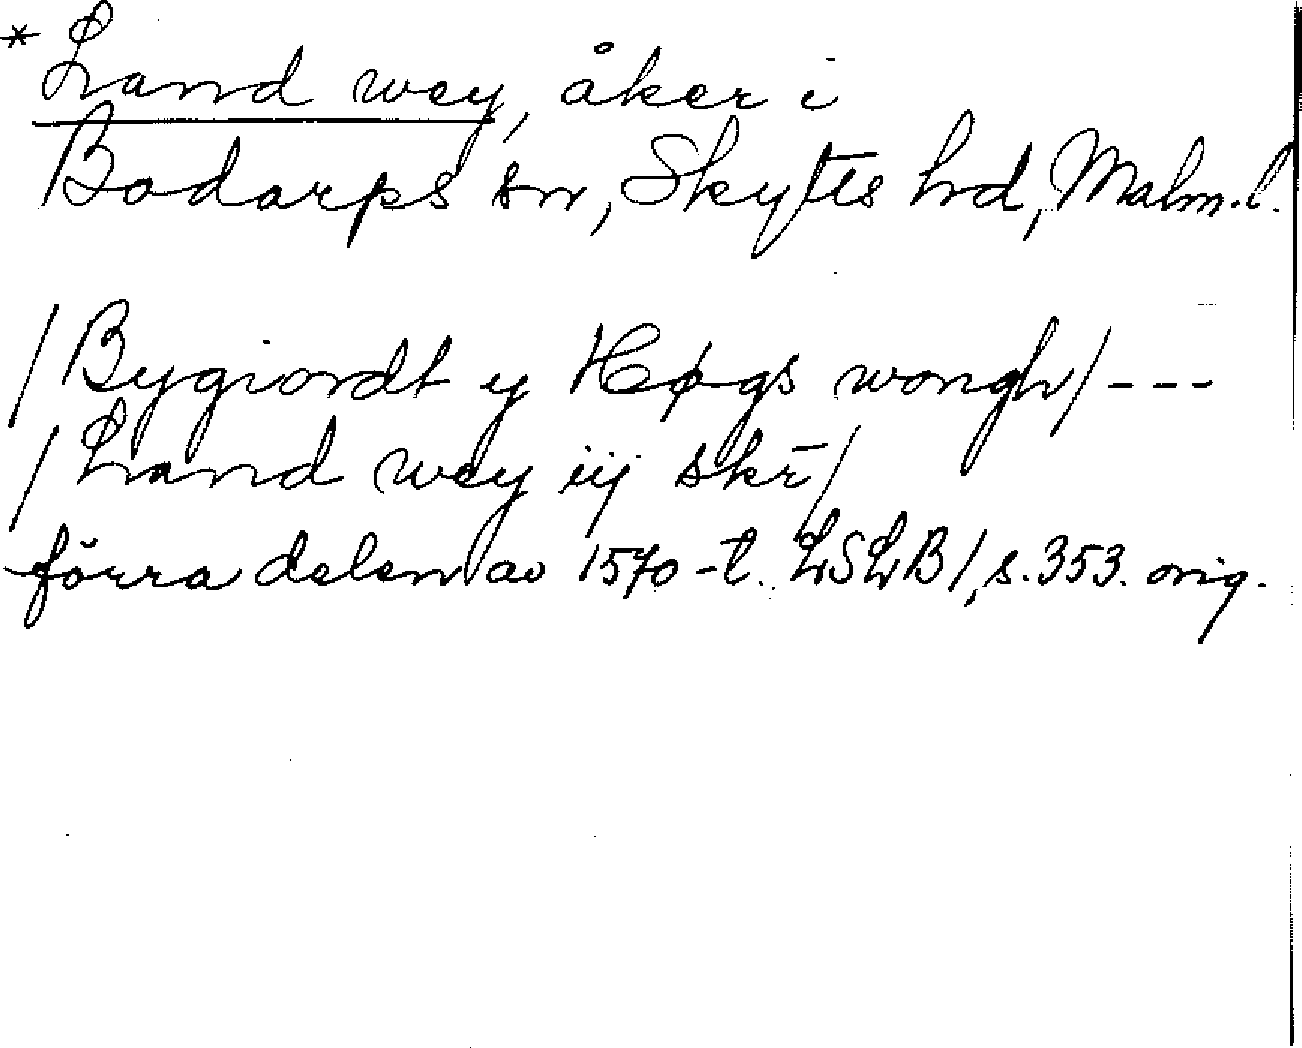 * Land wey, åker i
Bodarps sn, Skytts hd, Malm.l.
/Bygiordt y Høgs wongh/ ---
/Land wey iij skr̄/
förra delen av 1570-t. LSLB 1, s. 353. orig.